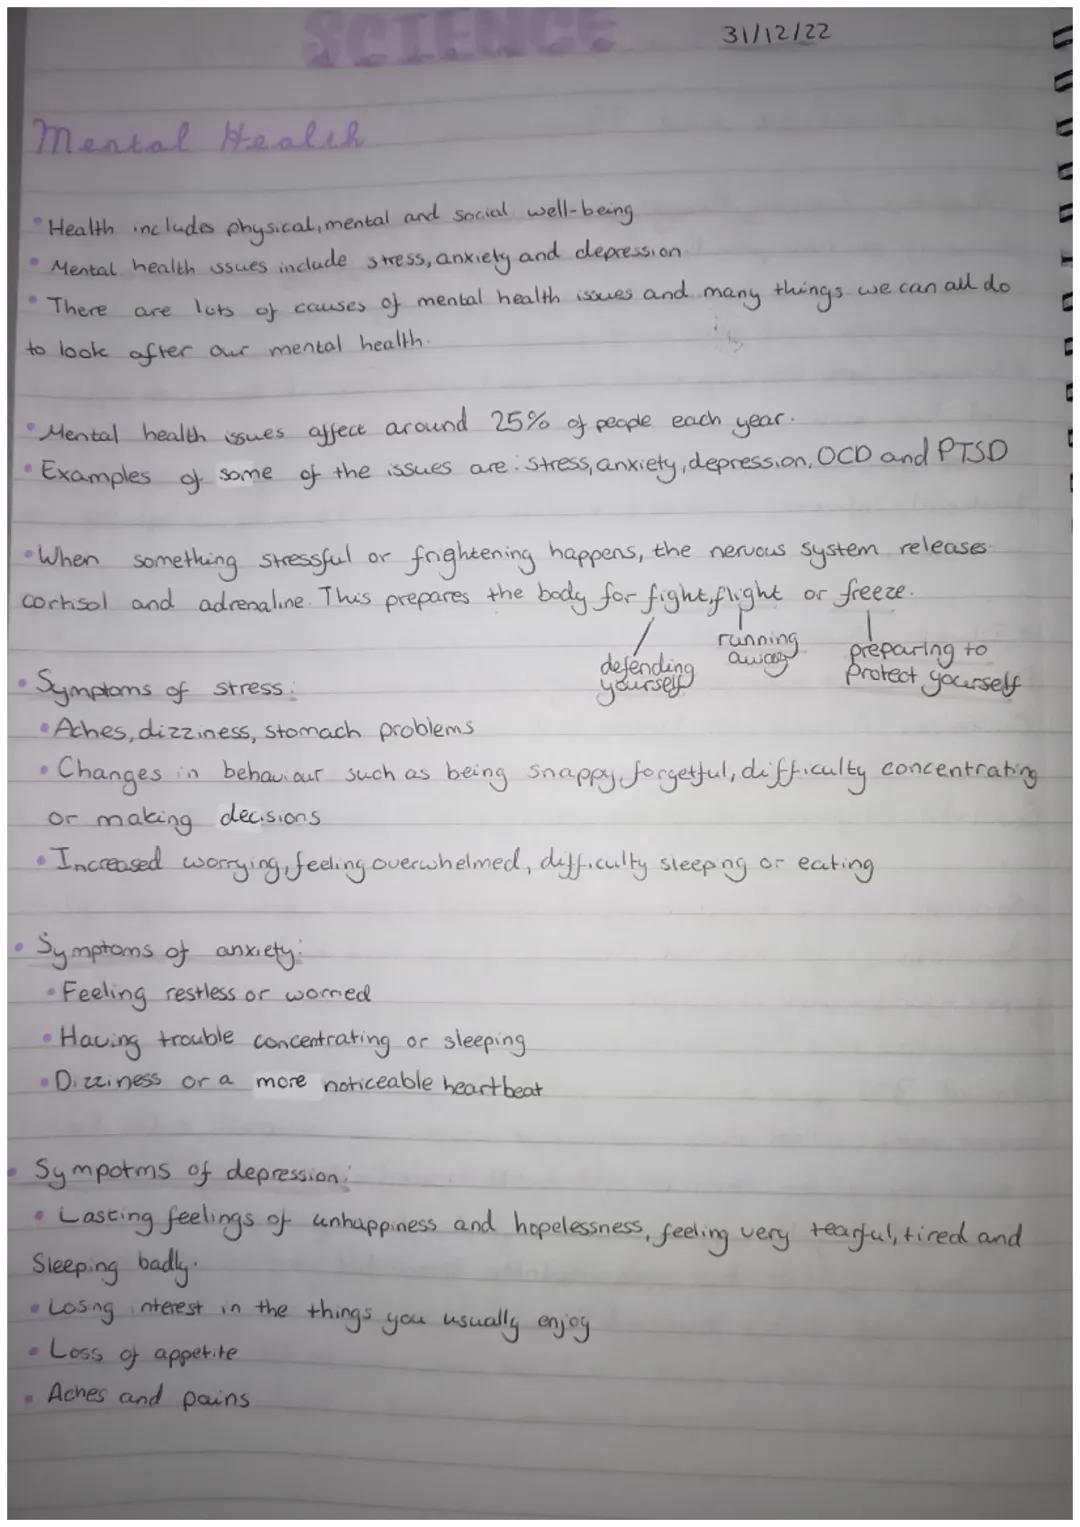 SCIENCE
31/12/22
Mental Health
• Health includes physical, mental and social well-being
• Mental health issues include stress, anxiety and depression
• There are lots of causes of mental health issues and many things we can all do
to look after our mental health.
• Mental health issues affect around 25% of people each year.
• Examples of some of the issues are: stress, anxiety, depression, OCD and PTSD
• When something stressful or frightening happens, the nervous system releases
cortisol and adrenaline. This prepares the body for fight, flight or freeze.
defending
yourself
running
away
preparing to
protect yourself
• Symptoms of stress:
• Aches, dizziness, stomach problems
• Changes in behaviour such as being snappy, forgetful, difficulty concentrating
or making decisions
• Increased worrying, feeling overwhelmed, difficulty sleeping or eating
• Symptoms of anxiety:
• Feeling restless or worried
• Having trouble concentrating or sleeping
• Dizziness or a more noticeable heartbeat
• Sympotms of depression:
• Lasting feelings of unhappiness and hopelessness, feeling very tearful, tired and
Sleeping badly.
• Losing interest in the things you usually enjoy
• Loss of appetite
• Aches and pains